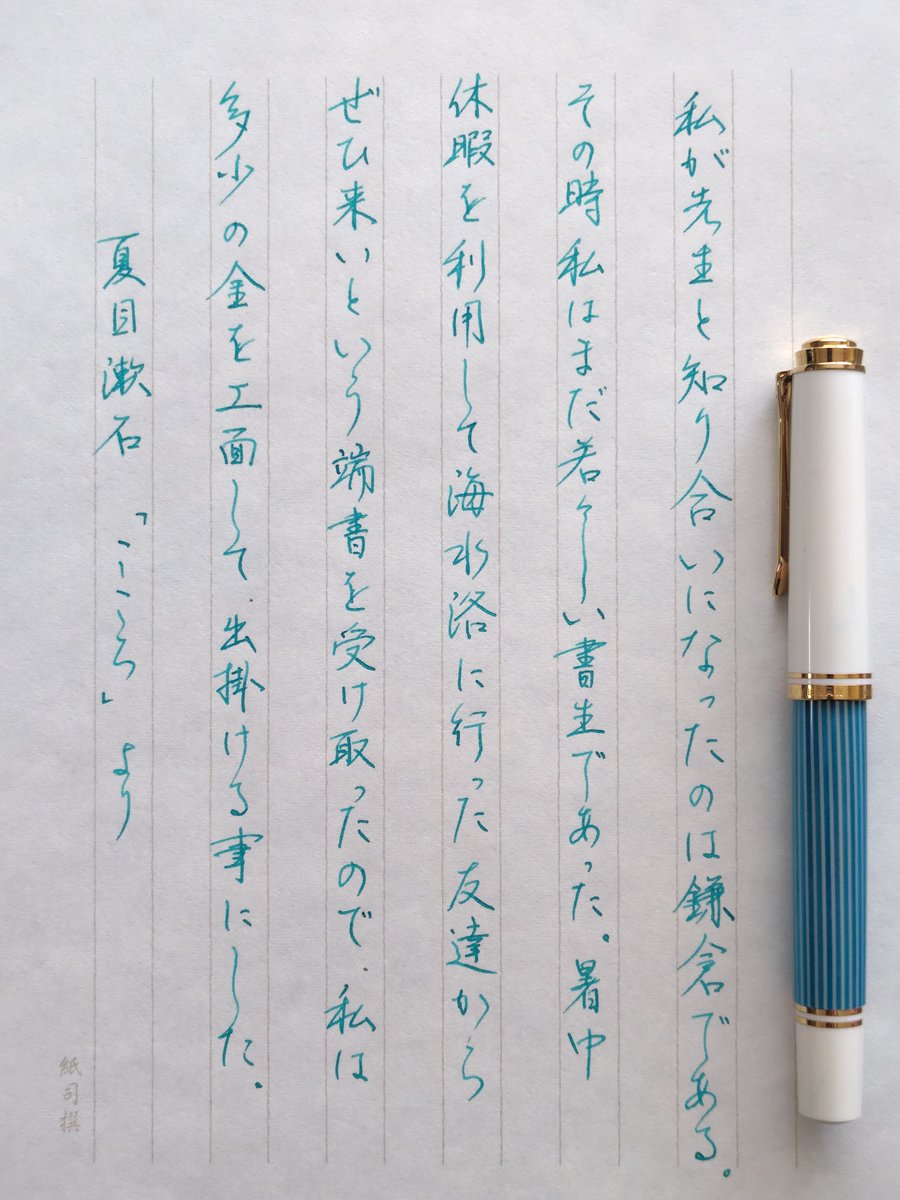 私が先生と知り合いになったのは鎌倉である。
その時私はまだ若々しい書生であった。暑中
休暇を利用して海水浴に行った友達から
ぜひ来いという端書を受け取ったので、私は
多少の金を工面して、出掛ける事にした。
夏目漱石「こころ」より
紙司撰